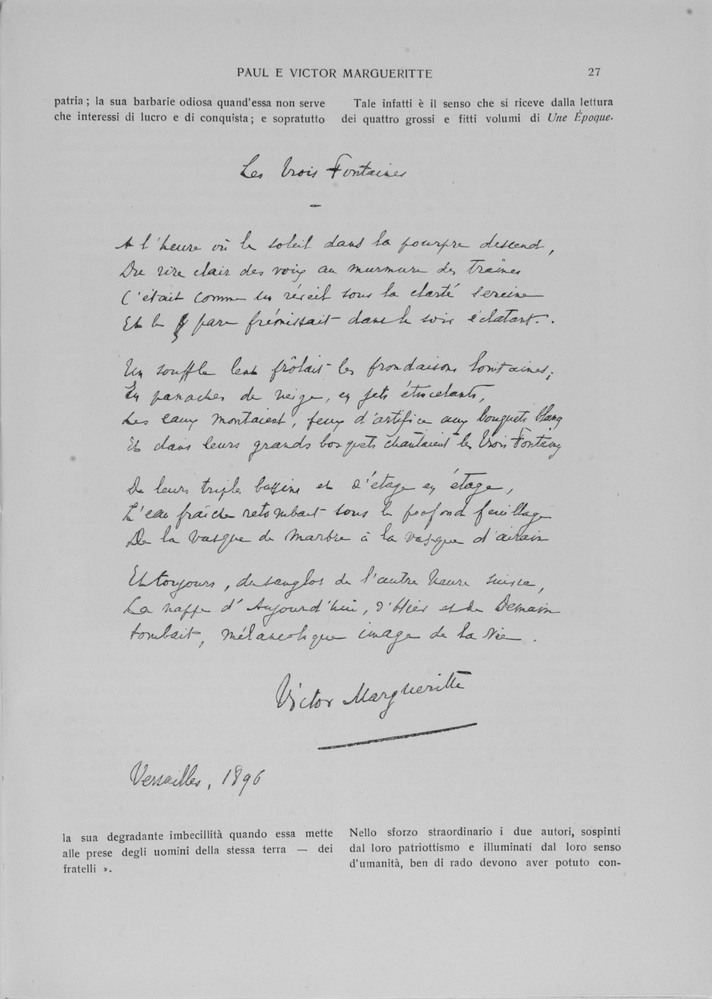 PAUL E VICTOR MARGUERITTE 27
patria; la sua barbarie odiosa quand'essa non serve
che interessi di lucro e di conquista; e sopratutto
Tale infatti è il senso che si riceve dalla lettura
dei quattro grossi e fitti volumi di Une Époque.
Les Trois Fontaines
A l'heure où le soleil dans la pourpre descend,
Du rire clair des voix au murmure des traînes
C'était comme un réveil sous la clarté sereine
Et le parc frémissait dans le soir éclatant.
Un souffle lent frôlait les frondaisons lointaines;
En panaches de neige, en jets étincelants,
Les eaux montaient, feux d'artifice aux bouquets blancs
Et dans leurs grands bosquets chantaient les Trois Fontaines
De leurs triples bassins et d'étage en étage,
L'eau fraîche retombait sous le profond feuillage
De la vasque de marbre à la vasque d'airain
Et toujours, des sanglots de l'autre heure suivie,
La nappe d'Aujourd'hui, d'Hier et de Demain
tombait, mélancolique image de la Vie.
Victor Margueritte
Versailles, 1896
la sua degradante imbecillità quando essa mette
alle prese degli uomini della stessa terra — dei
fratelli ».
Nello sforzo straordinario i due autori, sospinti
dal loro patriottismo e illuminati dal loro senso
d'umanità, ben di rado devono aver potuto con-